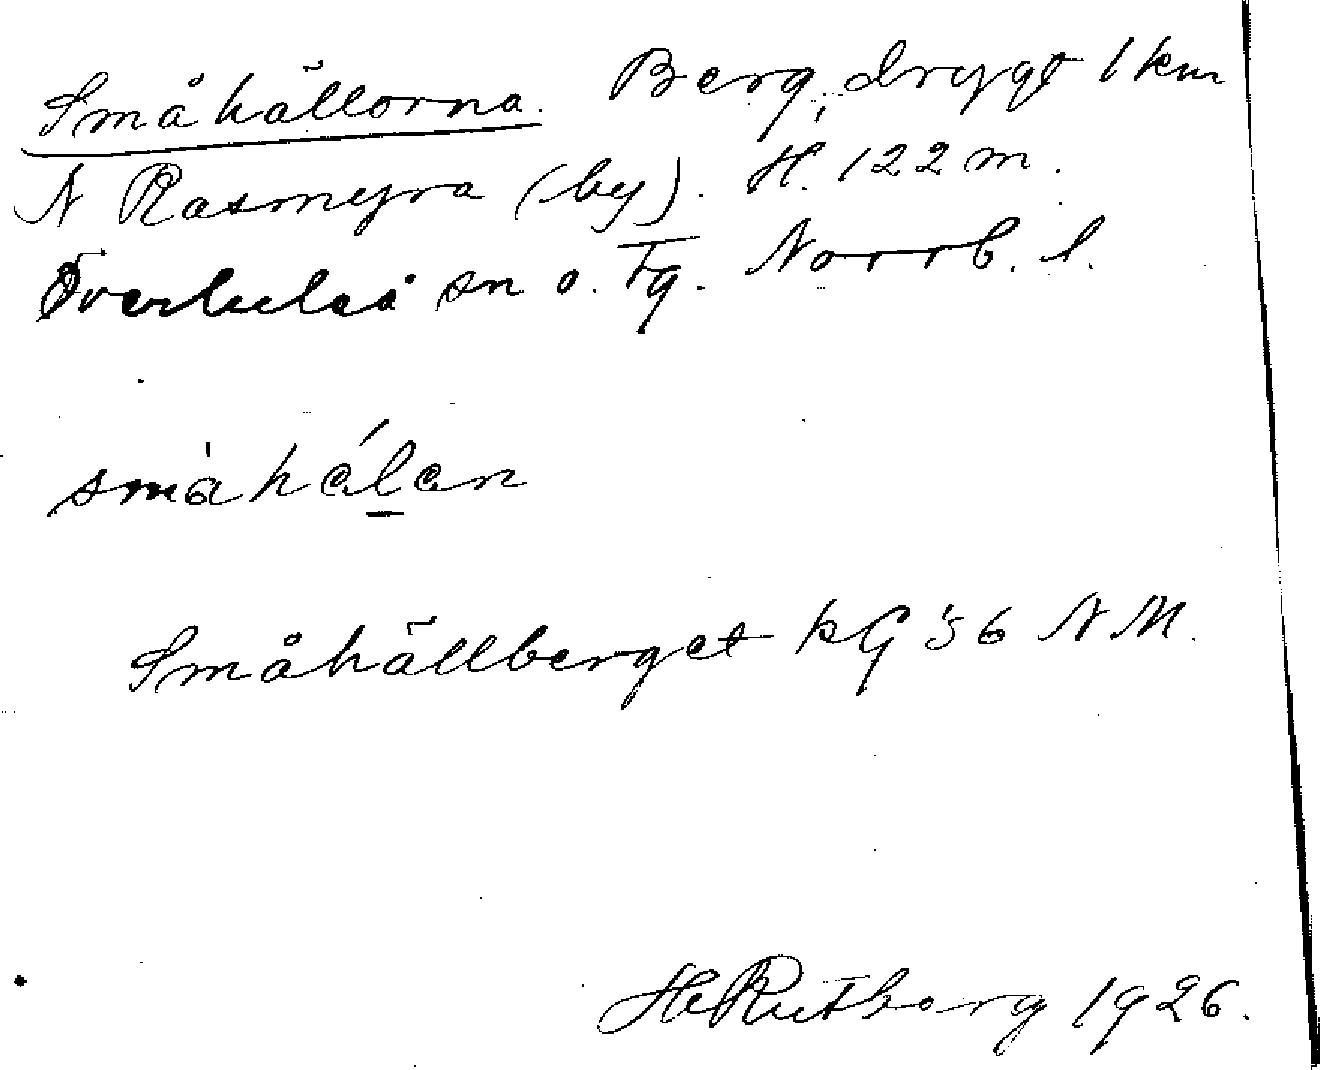 Småhällorna. Berg, drygt 1 km
N Rasmyra (by). H. 122 m.
Överluleå sn o. Tg. Norrb. l.
småhälan
Småhällberget kG '56 N M.
H Rutberg 1926.